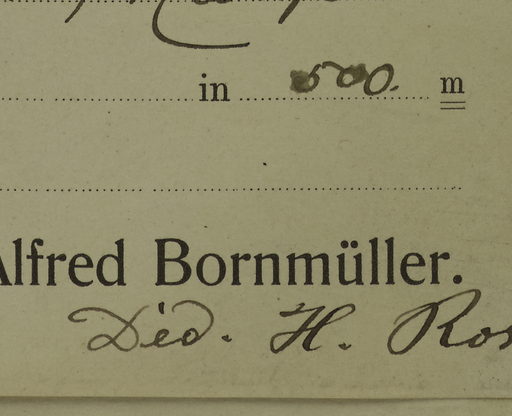 in 500. m
Alfred Bornmüller.
Died. H. Ros